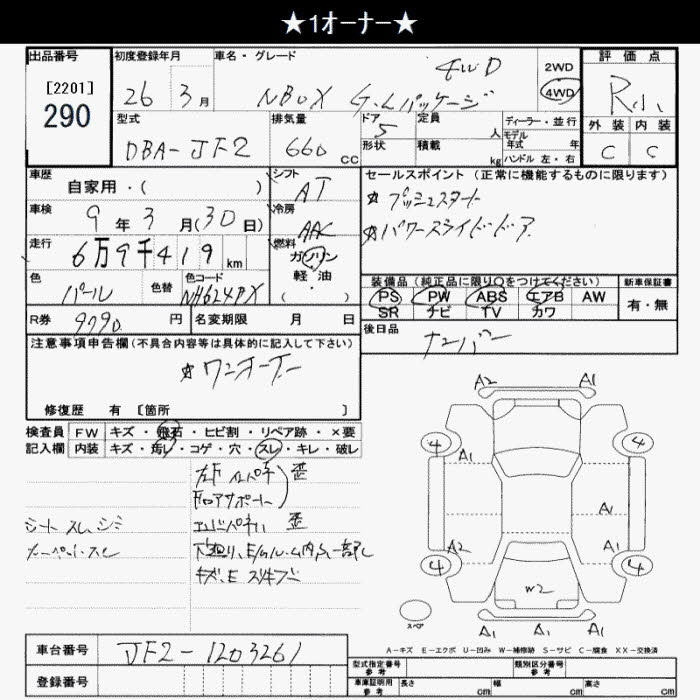 ★1オーナー★
出品番号 初度登録年月 車名・グレード 評価点
[2201]
290
26年 3月 NBOX G・Lパッケージ 4WD 2WD 4WD R小
外装 内装
C C
型式 排気量 ドア 定員 人 ディーラー・並行
DBA-JF2 660 cc 5 形状 積載 kg モデル年式 年式
ハンドル 左・右
車歴 シフト セールスポイント (正常に機能するものに限ります)
自家用・( ) AT ☆プッシュスタート
車検 冷房 ☆パワースライドドア
9年3月(30日) AAC
走行 燃料
6万9千419km ガソリン
軽・油
( )
色 色替 色コード
パール NH624PX
装備品 (純正品に限り○をつけてください) 新車保証書
PS PW ABS エアB AW 有・無
SR ナビ TV カワ
R券 9790円 名変期限 月 日 後日品
ナンバー
注意事項申告欄 (不具合内容等は具体的に記入して下さい)
☆ワンオーナー
修復歴 有 [箇所 ]
検査員 FW キズ・飛石・ヒビ割・リペア跡・×要
記入欄 内装 キズ・汚レ・コゲ・穴・スレ・キレ・破レ
歪
フロアサポート
シート スレ、シミ エンドパネル 歪
カーペットスレ
A2 A1
4 4
A1
A1
A2 A1
4 4
W2
スペア
A1 A1 A1
A-キズ E-エクボ U-凹み W-補修跡 S-サビ C-腐食 XX-交換済
車台番号 JF2-1203261
登録番号
型式指定番号 参考 類別区分番号 参考
車庫証明用 参考 長さ cm 幅 cm 高さ cm